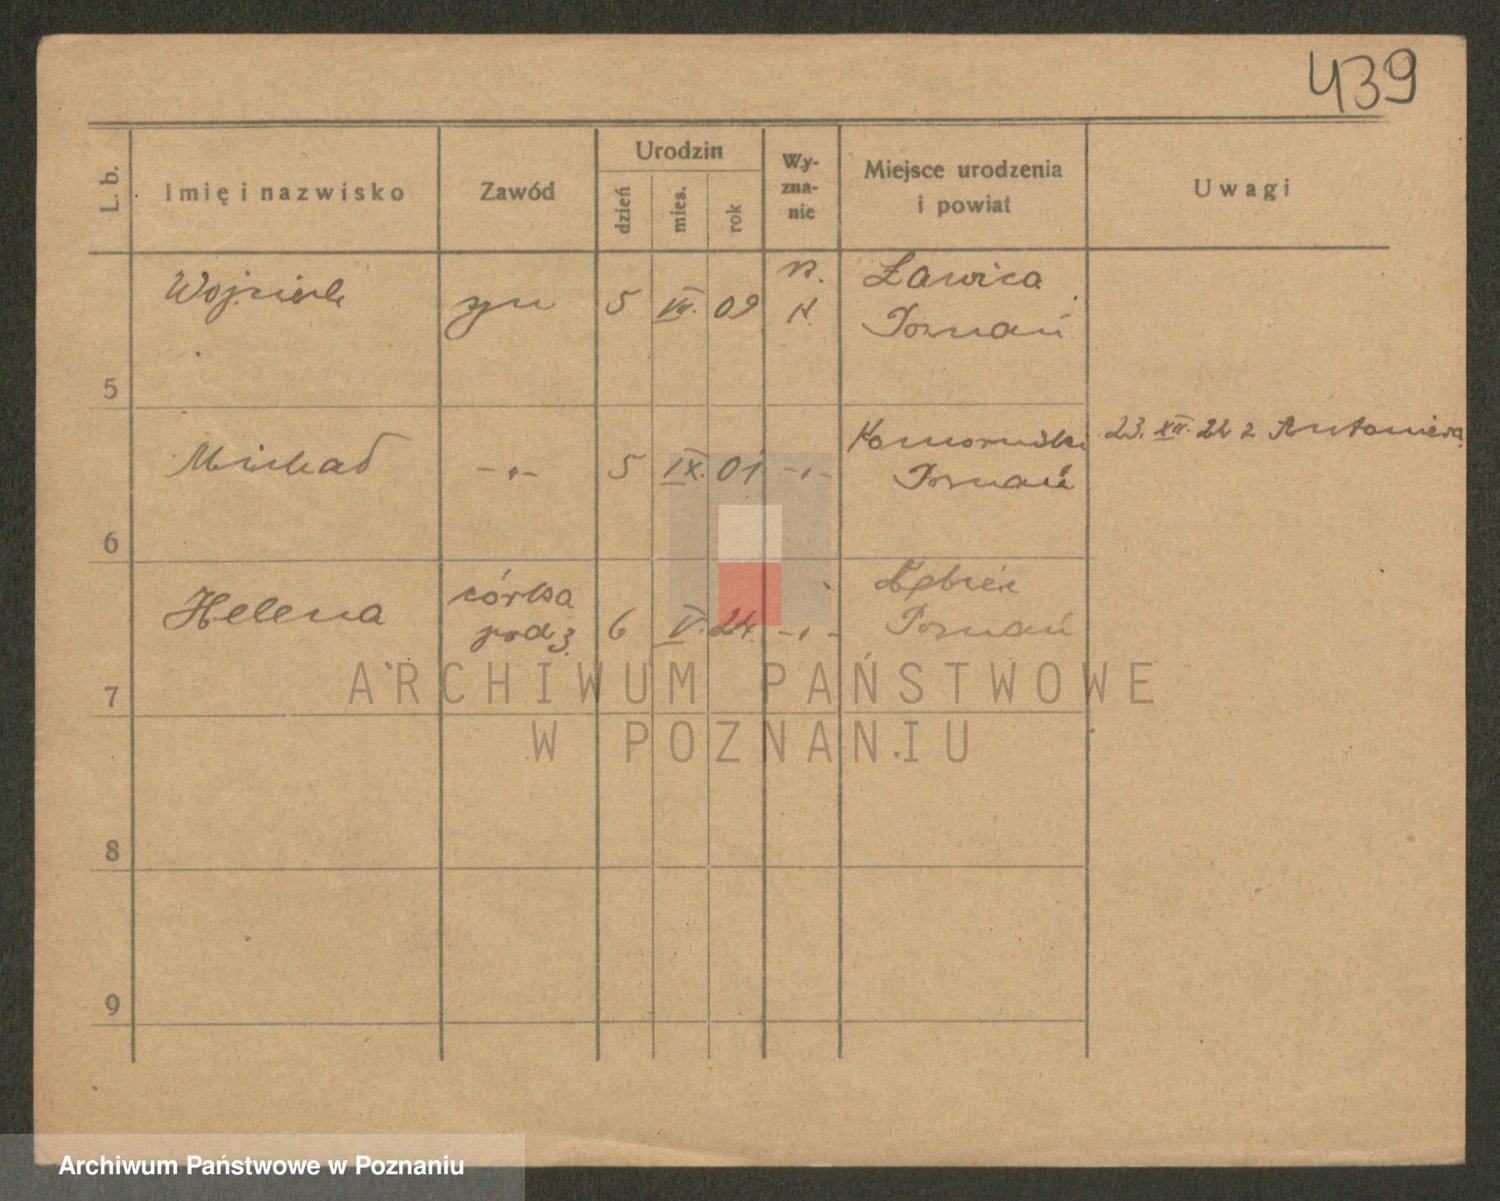 439
L. b.
Imię i nazwisko
Zawód
Urodzin
dzień
mies.
rok
Wy-
zna-
nie
Miejsce urodzenia
i powiat
Uwagi
5
Wojciech
syn
5 VII. 09
Ławica
Poznań
6
Michał
-"-
5 IX. 01
Komorniki
Poznań
23. XII. 22 z Antoniewa
7
Helena
córka
6 V. 24.
Dębiec
Poznań
8
9
ARCHIWUM PAŃSTWOWE
W POZNANIU
Archiwum Państwowe w Poznaniu